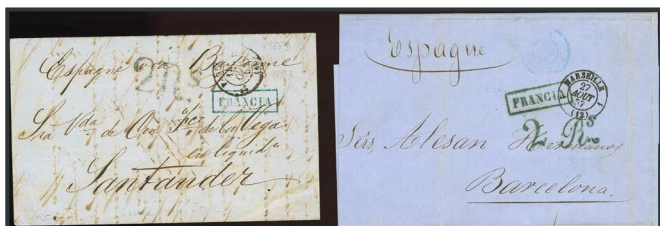 Espagne via Bayonne
2Rs
FRANCIA
Sra Vda de
de la Vega
en liquidn
Santander
Espagne
MARSEILLE
27
AOUT
57
(12)
FRANCIA
2 Rs
Sres, Alesan Hermanos
Barcelona.